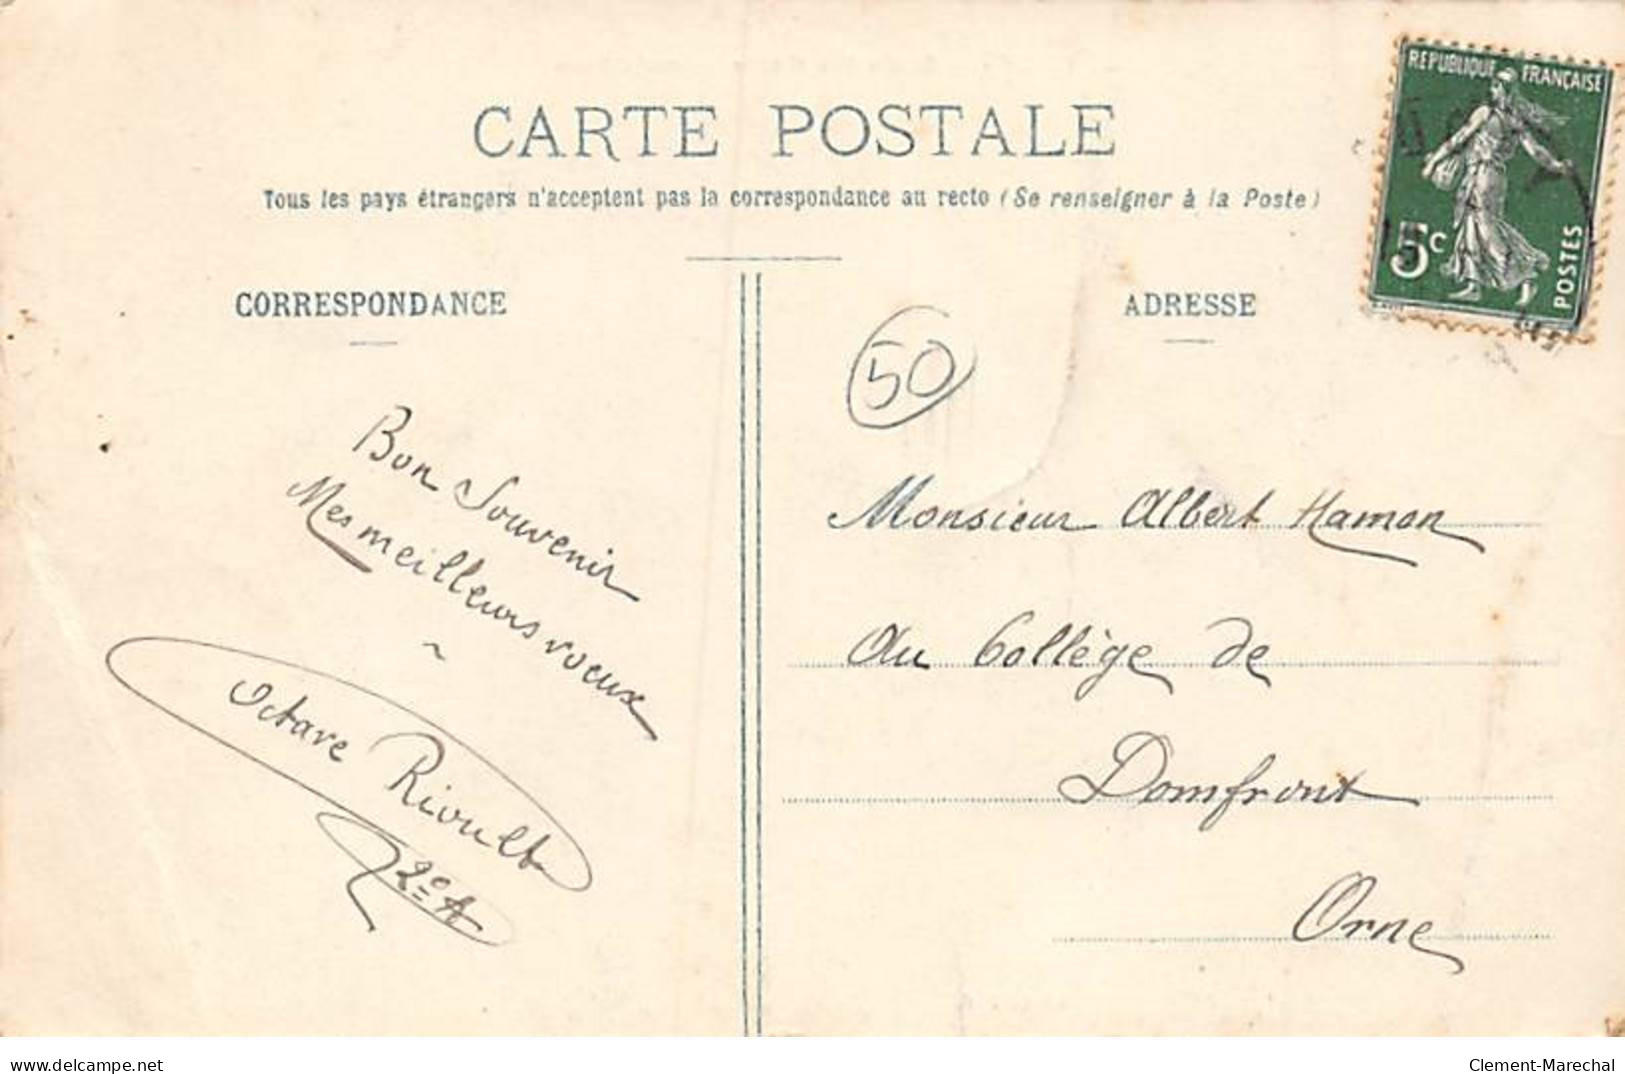 RÉPUBLIQUE FRANÇAISE
5c
POSTES
CARTE POSTALE
Tous les pays étrangers n'acceptent pas la correspondance au recto (Se renseigner à la Poste)
CORRESPONDANCE
ADRESSE
50
Bon Souvenir
Mes meilleurs voeux
Octave Rioult
2e A
Monsieur Albert Hamon
Au Collège de
Domfront
Orne
delcampe.net
Clement-Marechal